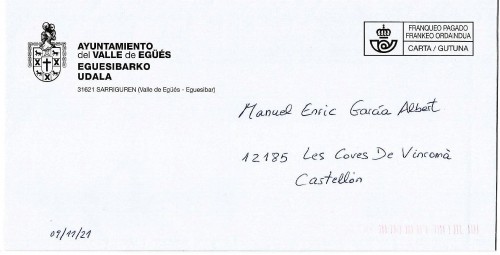 AYUNTAMIENTO
del VALLE de EGÜÉS
EGUESIBARKO
UDALA
31621 SARRIGUREN (Valle de Egüés - Eguesibar)
FRANQUEO PAGADO
FRANKEO ORDAINDUA
CARTA / GUTUNA
Manuel Enric García Albert
12185 Les Coves De Vinromà
Castellón
09/11/21